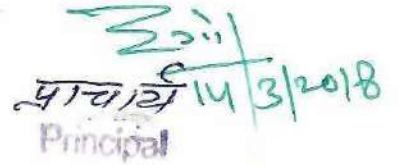 प्राचार्य 14/3/2018
Principal